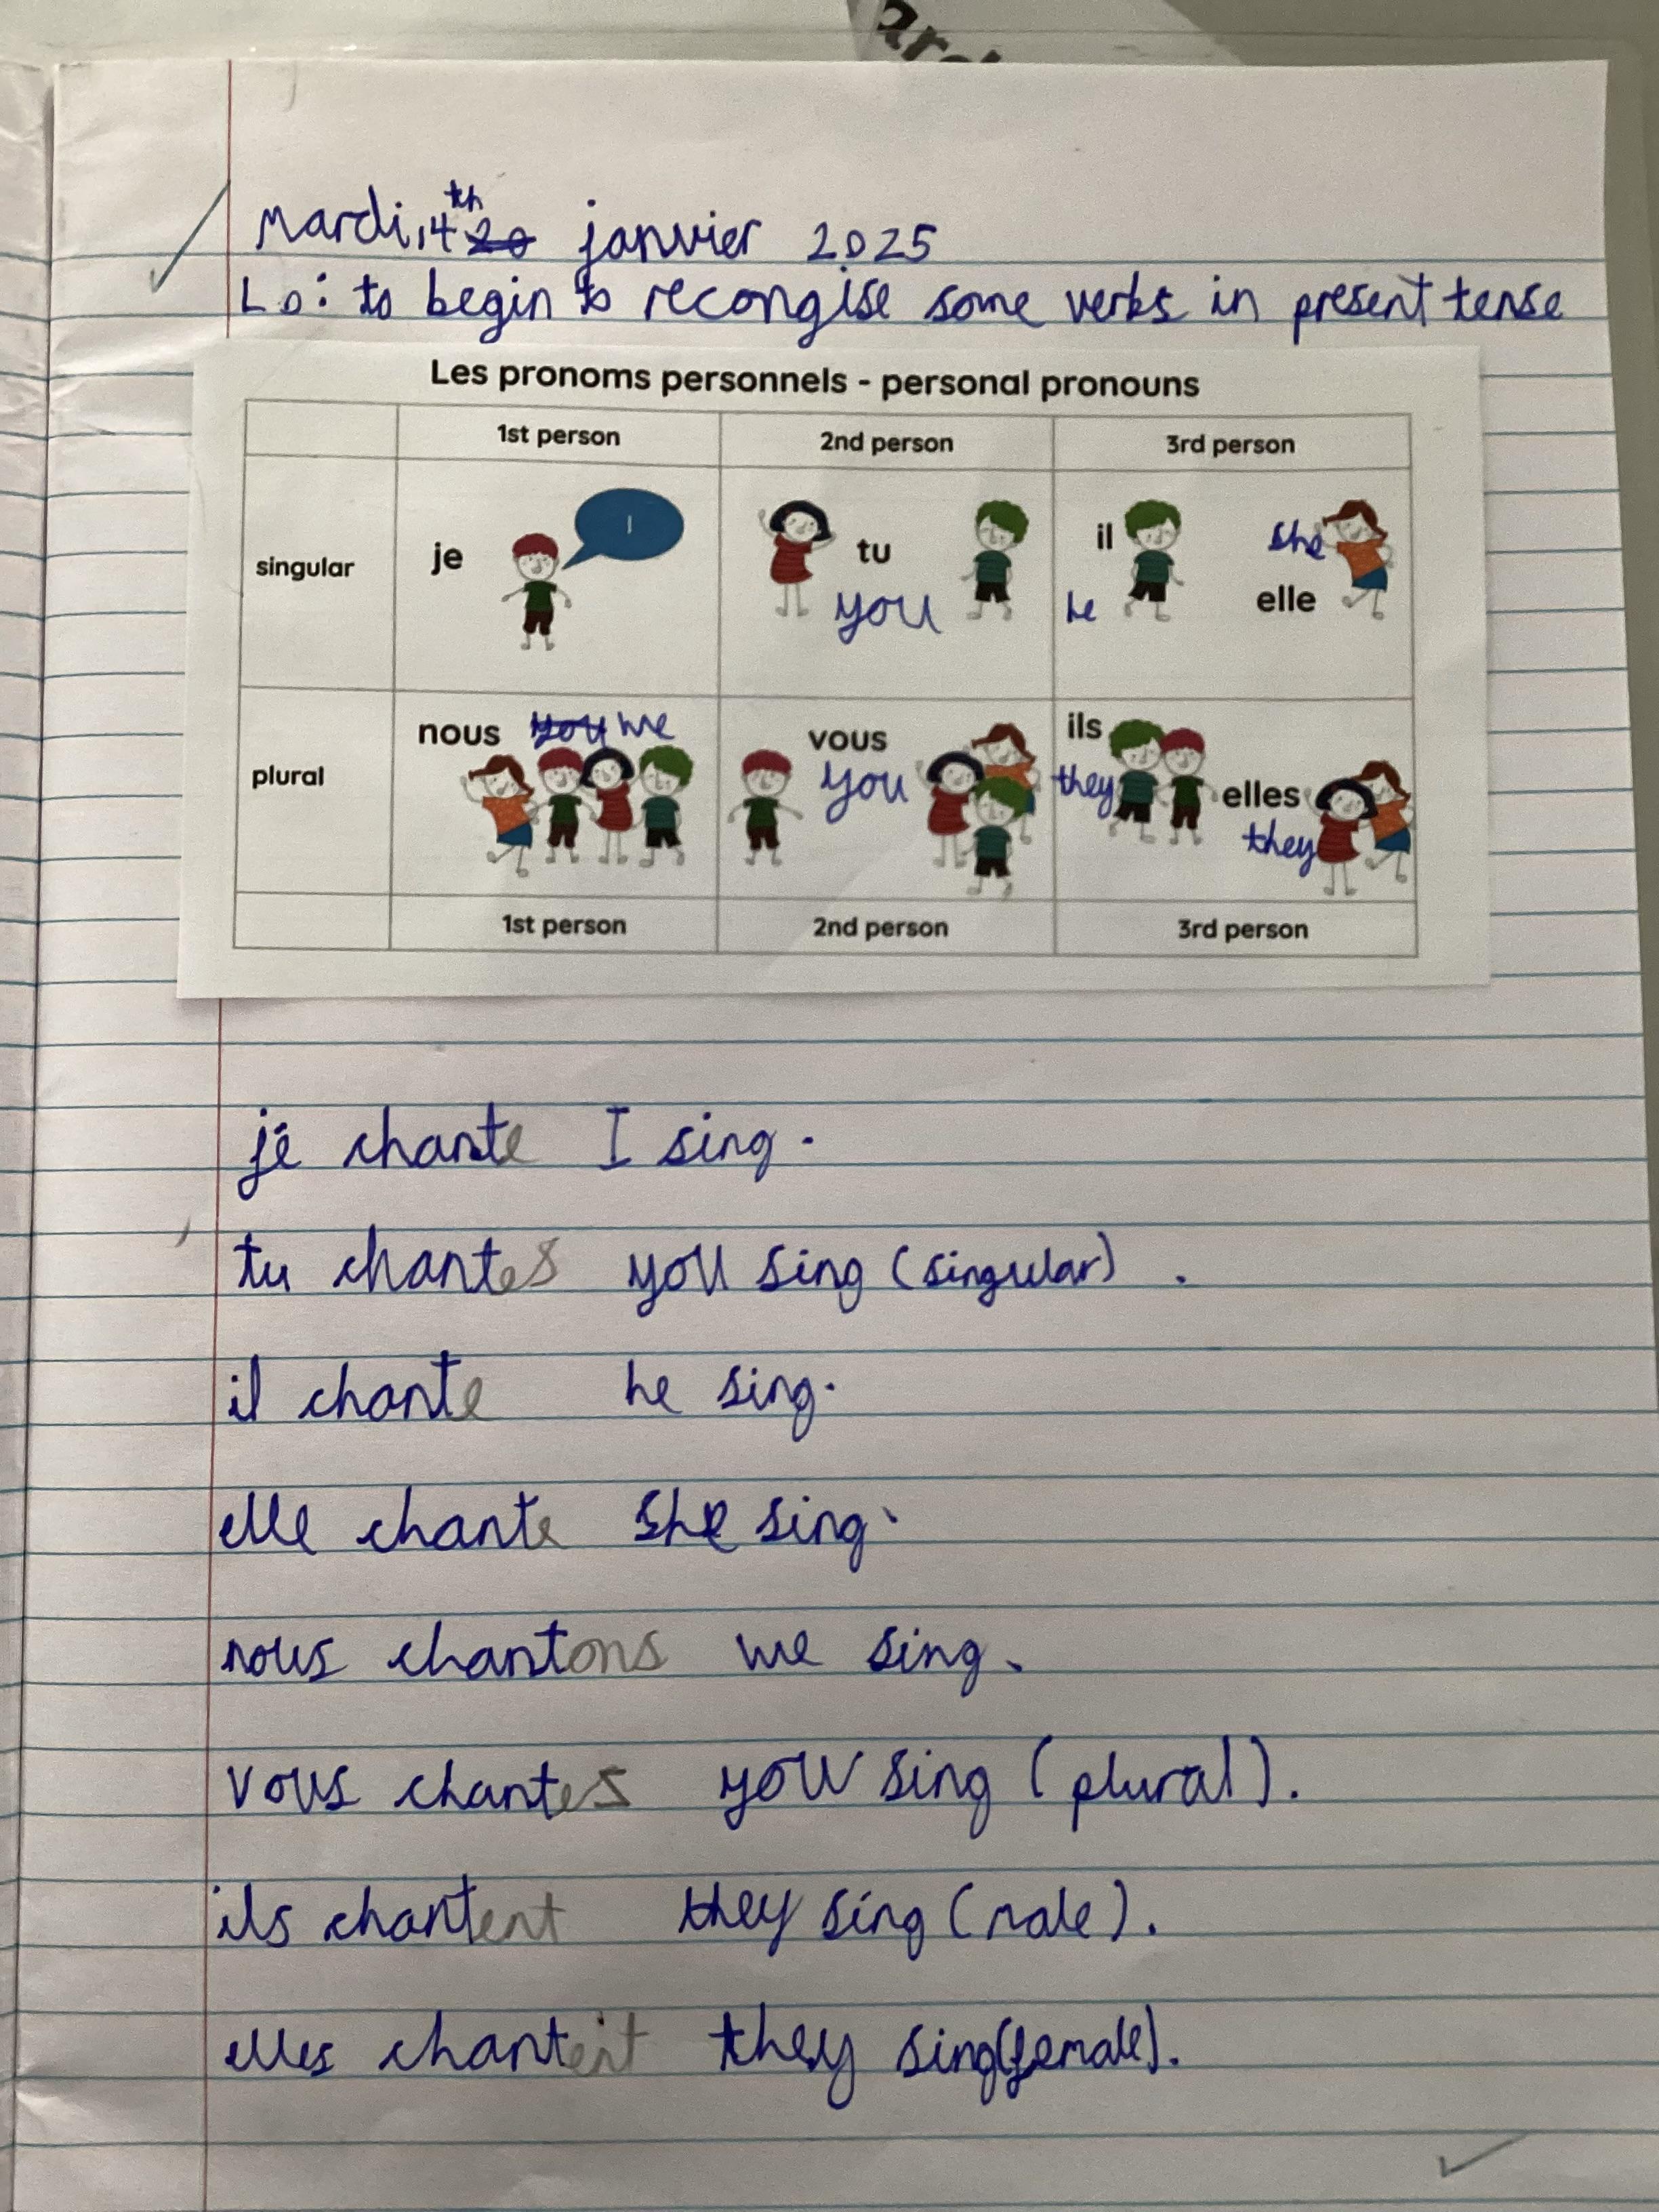 Mardi 14th 20 janvier 2025
Lo: to begin to recongise some verbs in present tense
Les pronoms personnels - personal pronouns
1st person 2nd person 3rd person
singular je I tu you il he she elle
plural nous you we vous you ils they elles they
1st person 2nd person 3rd person
je chante I sing.
tu chantes you sing (singular).
il chante he sing.
elle chante she sing.
nous chantons we sing.
vous chantes you sing (plural).
ils chantent they sing (male).
elles chantent they sing (female).